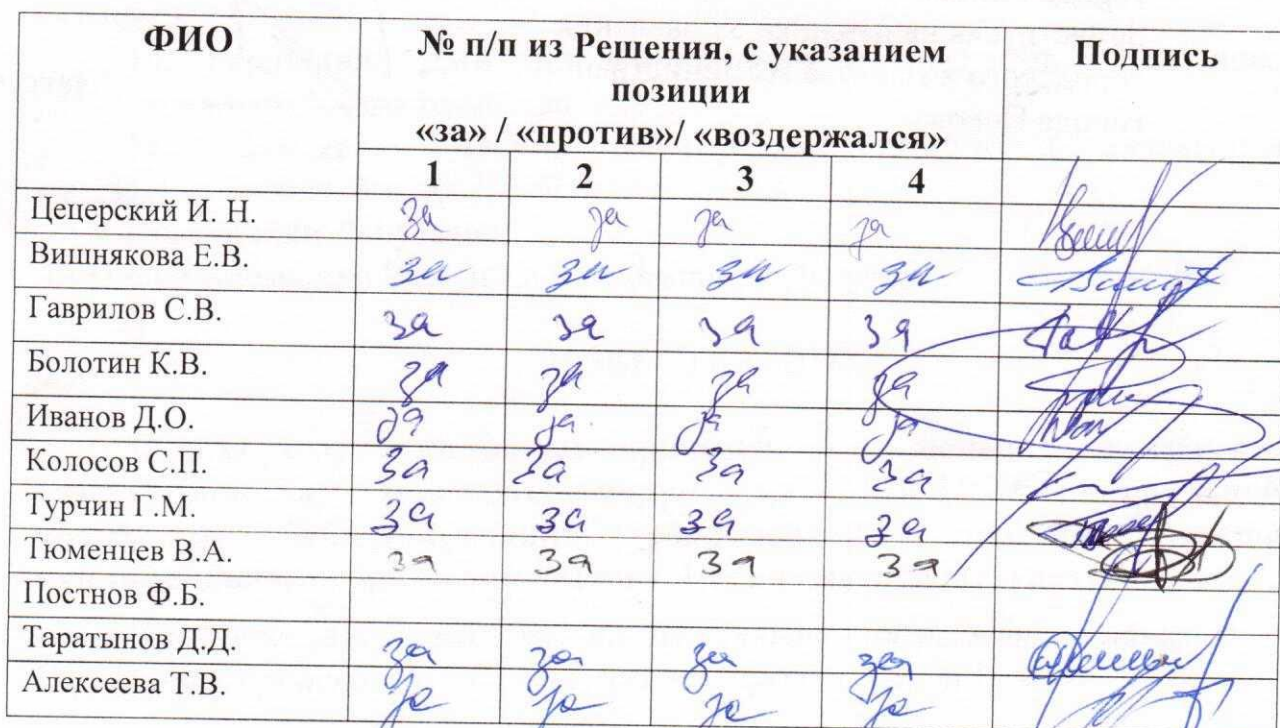 ФИО
№ п/п из Решения, с указанием
позиции
«за» / «против»/ «воздержался»
Подпись
1 2 3 4
Цецерский И. Н. за за за за
Вишнякова Е.В. за за за за
Гаврилов С.В. за за за за
Болотин К.В. за за за за
Иванов Д.О. за за за за
Колосов С.П. за за за за
Турчин Г.М. за за за за
Тюменцев В.А. за за за за
Постнов Ф.Б.
Таратынов Д.Д. за за за за
Алексеева Т.В. за за за за